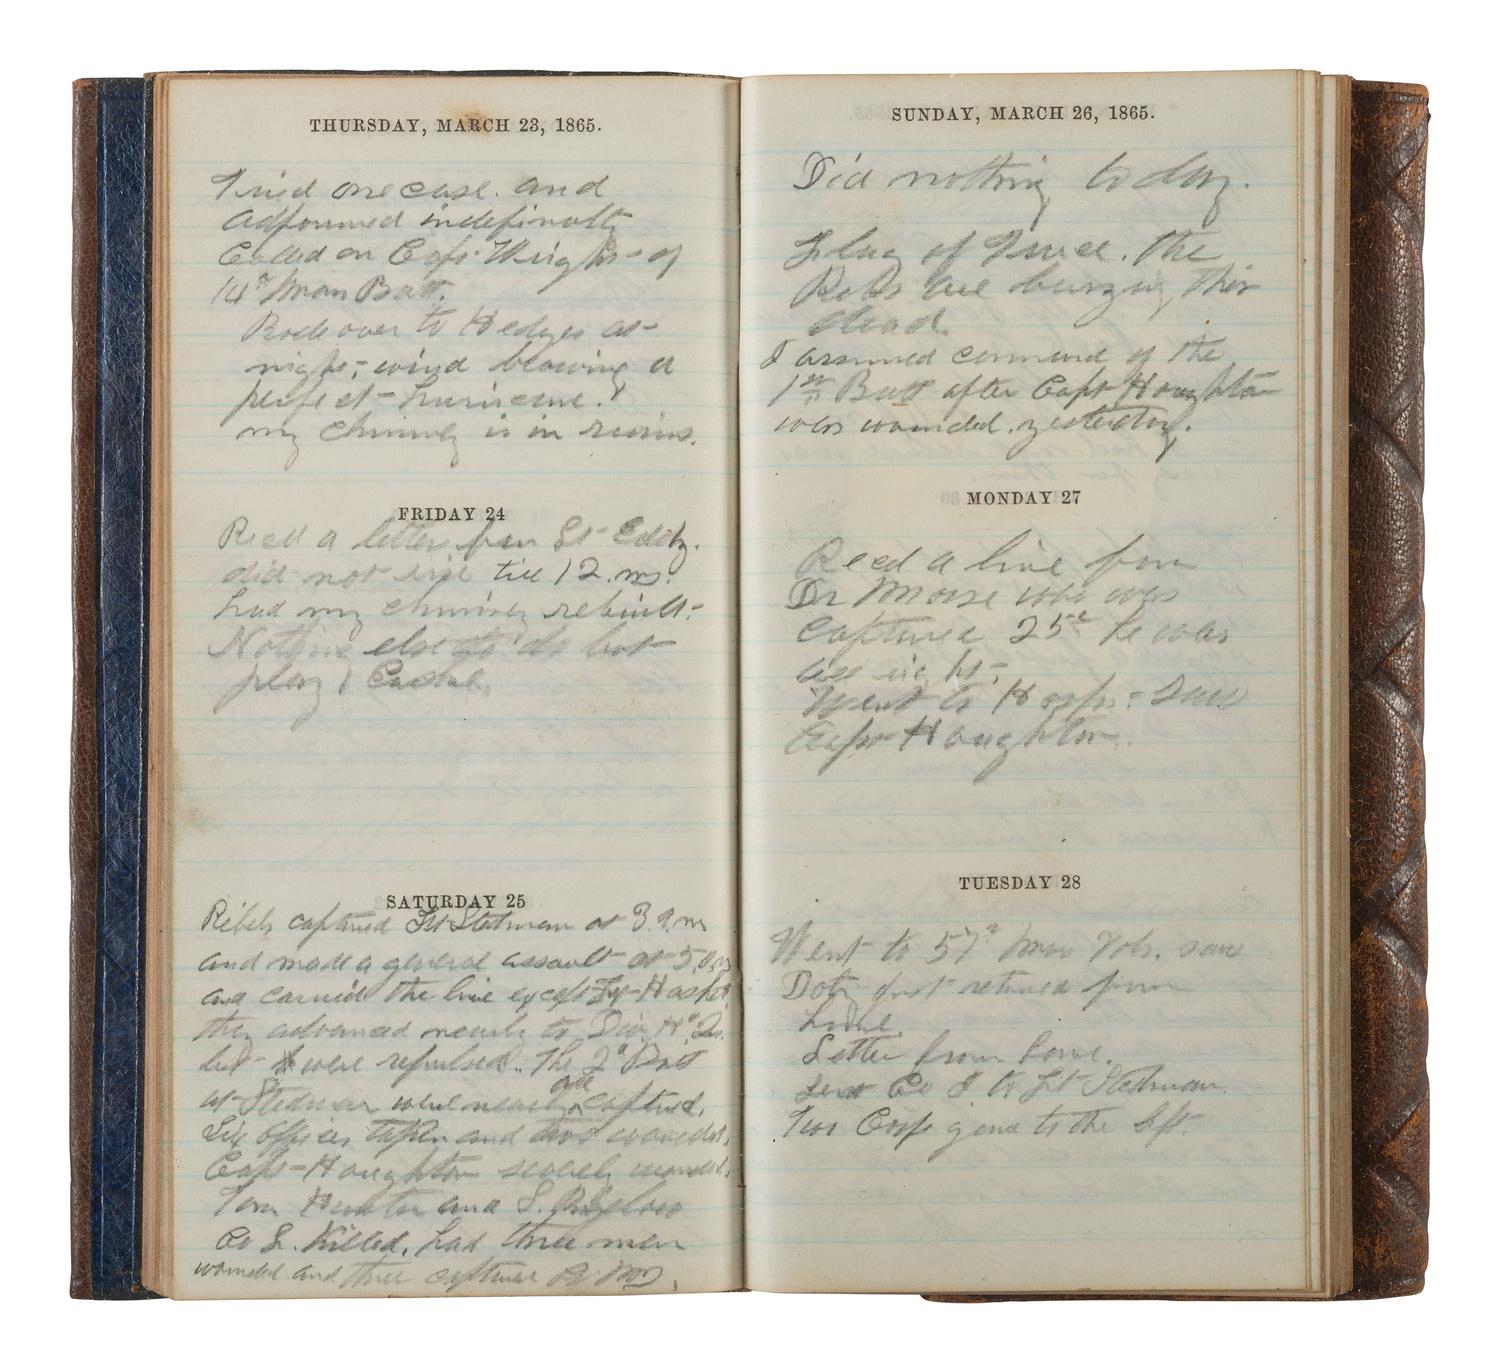 THURSDAY, MARCH 23, 1865.
Tried one case. and
adjourned indefinatly
Called on Capt. Wright of
14th Batt.
Rode over to Hedges at
night; wind blowing a
perfect hurricane.
my chimney is in ruins.
FRIDAY 24
Recd a letter from Lt Eddy.
did not rise till 12. m.
had my chimney rebuilt.
Nothing else to do but
play
SATURDAY 25
Rebels captured Ft Stetman at 3 a. m
and made a general assault at 5 a. m
and carried the line except Ft Haskel
they advanced nearly to Div. Hd Qs.
but were repulsed. The 2d Batt
at Stedman were nearly all captured.
Six officers taken and two wounded.
Capt Houghton severely wounded.
Tom Hunter and S. Bigelow
Co L. Killed. had three men
wounded and three captured
SUNDAY, MARCH 26, 1865.
Did nothing to day.
Flag of Truce. The
Rebs are burying their
dead.
I assumed command of the
1st Batt after Capt Houghton
was wounded. yesterday.
MONDAY 27
Recd a line from
Dr Morse who was
captured 25th he was
all right.
Went to Hosp. saw
Capt Houghton.
TUESDAY 28
Went to 57th Mass Vols. saw
Doty just returned from
home.
Letter from home.
sent Co I. to Ft Stetman.
Two Corps gone to the left.